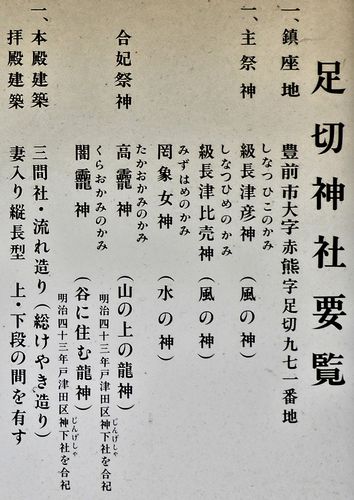 足切神社要覧
一、鎮座地 豊前市大字赤熊字足切九七一番地
しなつひこのかみ
一、主祭神 級長津彦神(風の神)
しなつひめのかみ
級長津比売神(風の神)
みずはめのかみ
罔象女神(水の神)
たかおかみのかみ
合妃祭神 高龗神(山の上の龍神)
じんげしゃ
明治四十三年戸津田区神下社を合祀
くらおかみのかみ
闇龗神(谷に住む龍神)
じんげしゃ
明治四十三年戸津田区神下社を合祀
一、本殿建築 三間社・流れ造り(総けやき造り)
拝殿建築 妻入り縦長型 上・下段の間を有す